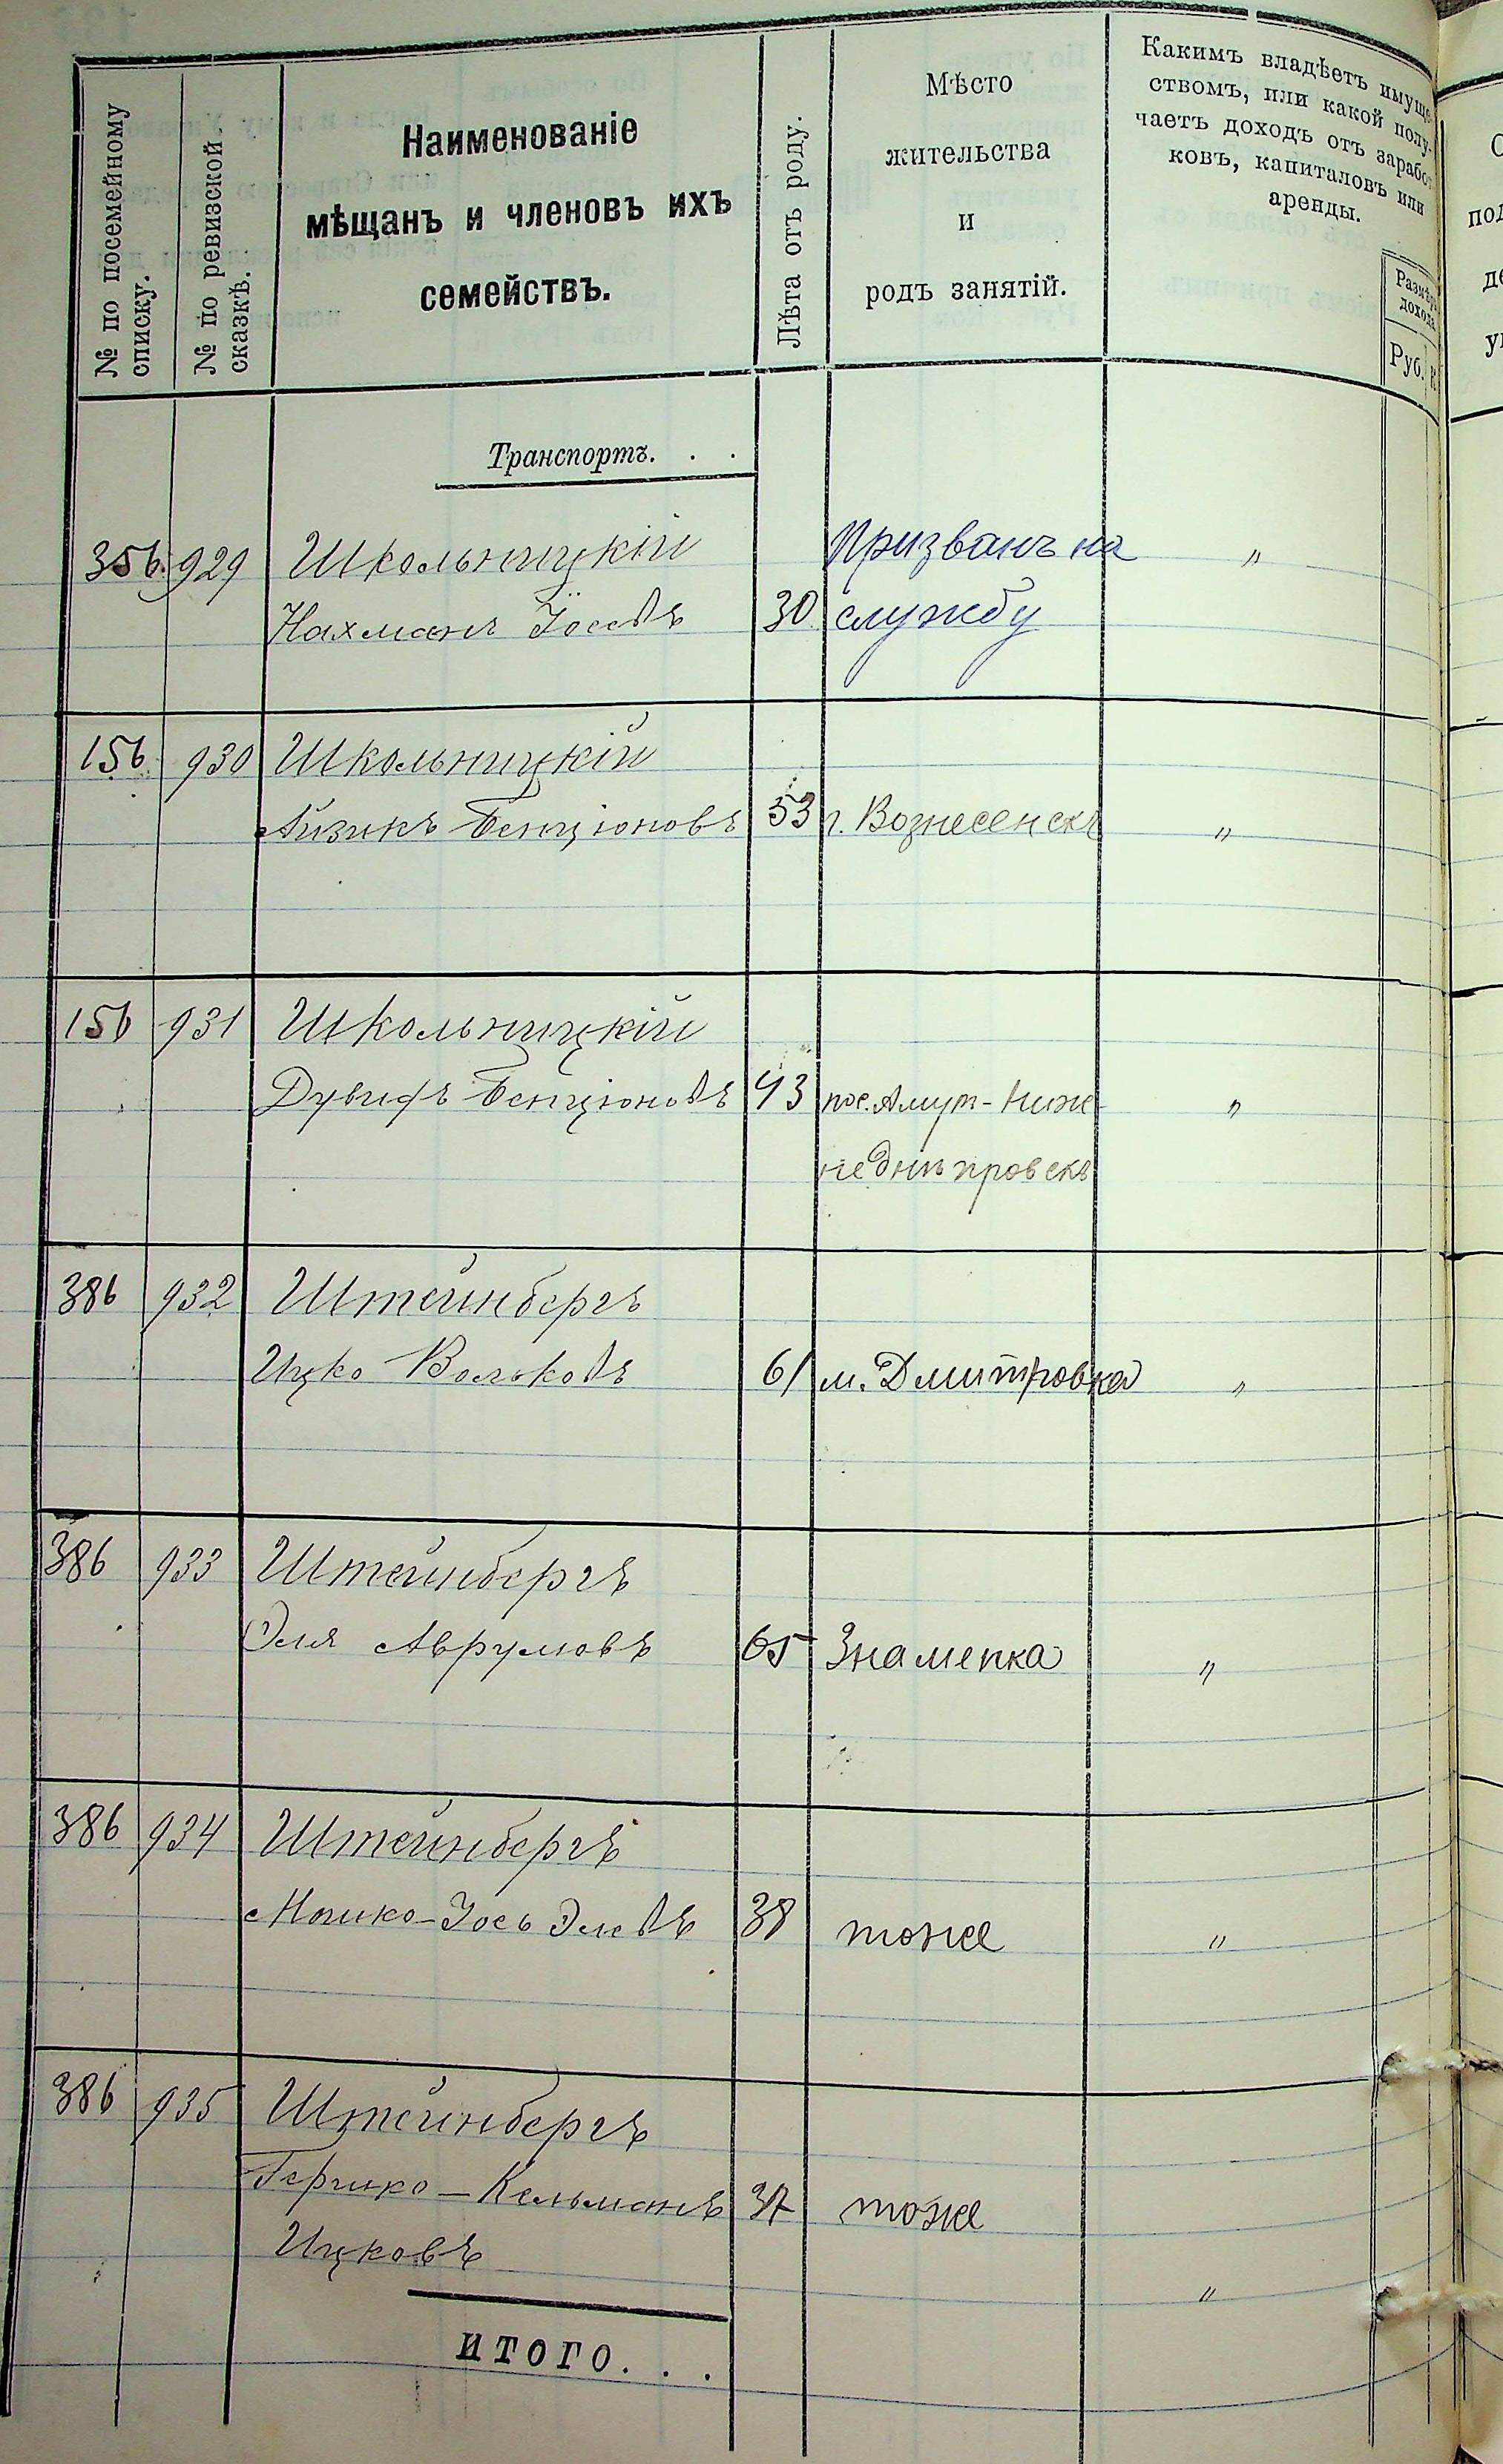 № по посемейному
списку.
№ по ревизской
сказкѣ.
Наименованіе
мѣщанъ и членовъ ихъ
семействъ.
Лѣта отъ роду.
Мѣсто
жительства
и
родъ занятій.
Какимъ владѣетъ имуще-
ствомъ, или какой полу-
чаетъ доходъ отъ заработ
ковъ, капиталовъ или
аренды.
Размѣръ
дохода
Руб. К
Транспортъ. . .
356 929 Школьницкій Призванъ на "
Нахманъ Іосевъ 30 службу
156 930 Школьницкій
Айзикъ Бенціоновъ 53 г. Вознесенскъ "
156 931 Школьницкій
Дувидъ Бенціоновъ 43 пос. Амур-Ниж "
недніпровскъ
386 932 Штейнбергъ
Ицко Вольковъ 61 м. Дмитровка "
386 933 Штейнбергъ
Эля Аврумовъ 65 Знаменка "
386 934 Штейнбергъ
Мошко-Іось Элевъ 38 тоже "
386 935 Штейнбергъ
Гершко-Кельманъ 37 тоже
Ицковъ "
ИТОГО. . .